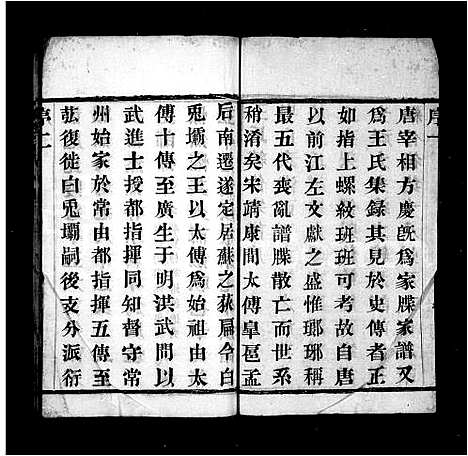 序一
唐宰相方慶旣爲家牒家譜又
爲王氏集録其見於史傳者正
如指上螺紋班班可考故自唐
以前江左文獻之盛惟瑯琊稱
最五代喪亂譜牒散亡而世系
稍淆矣宋靖康間太傅皐扈孟
后南遷遂定居蘇之荻扁今白
兎壩之王以太傅爲始祖由太
傅十傳至廣生于明洪武間以
武進士授都指揮同知督守常
州始家於常由都指揮五傳至
莊復徙白兎壩嗣後支分派衍
序二